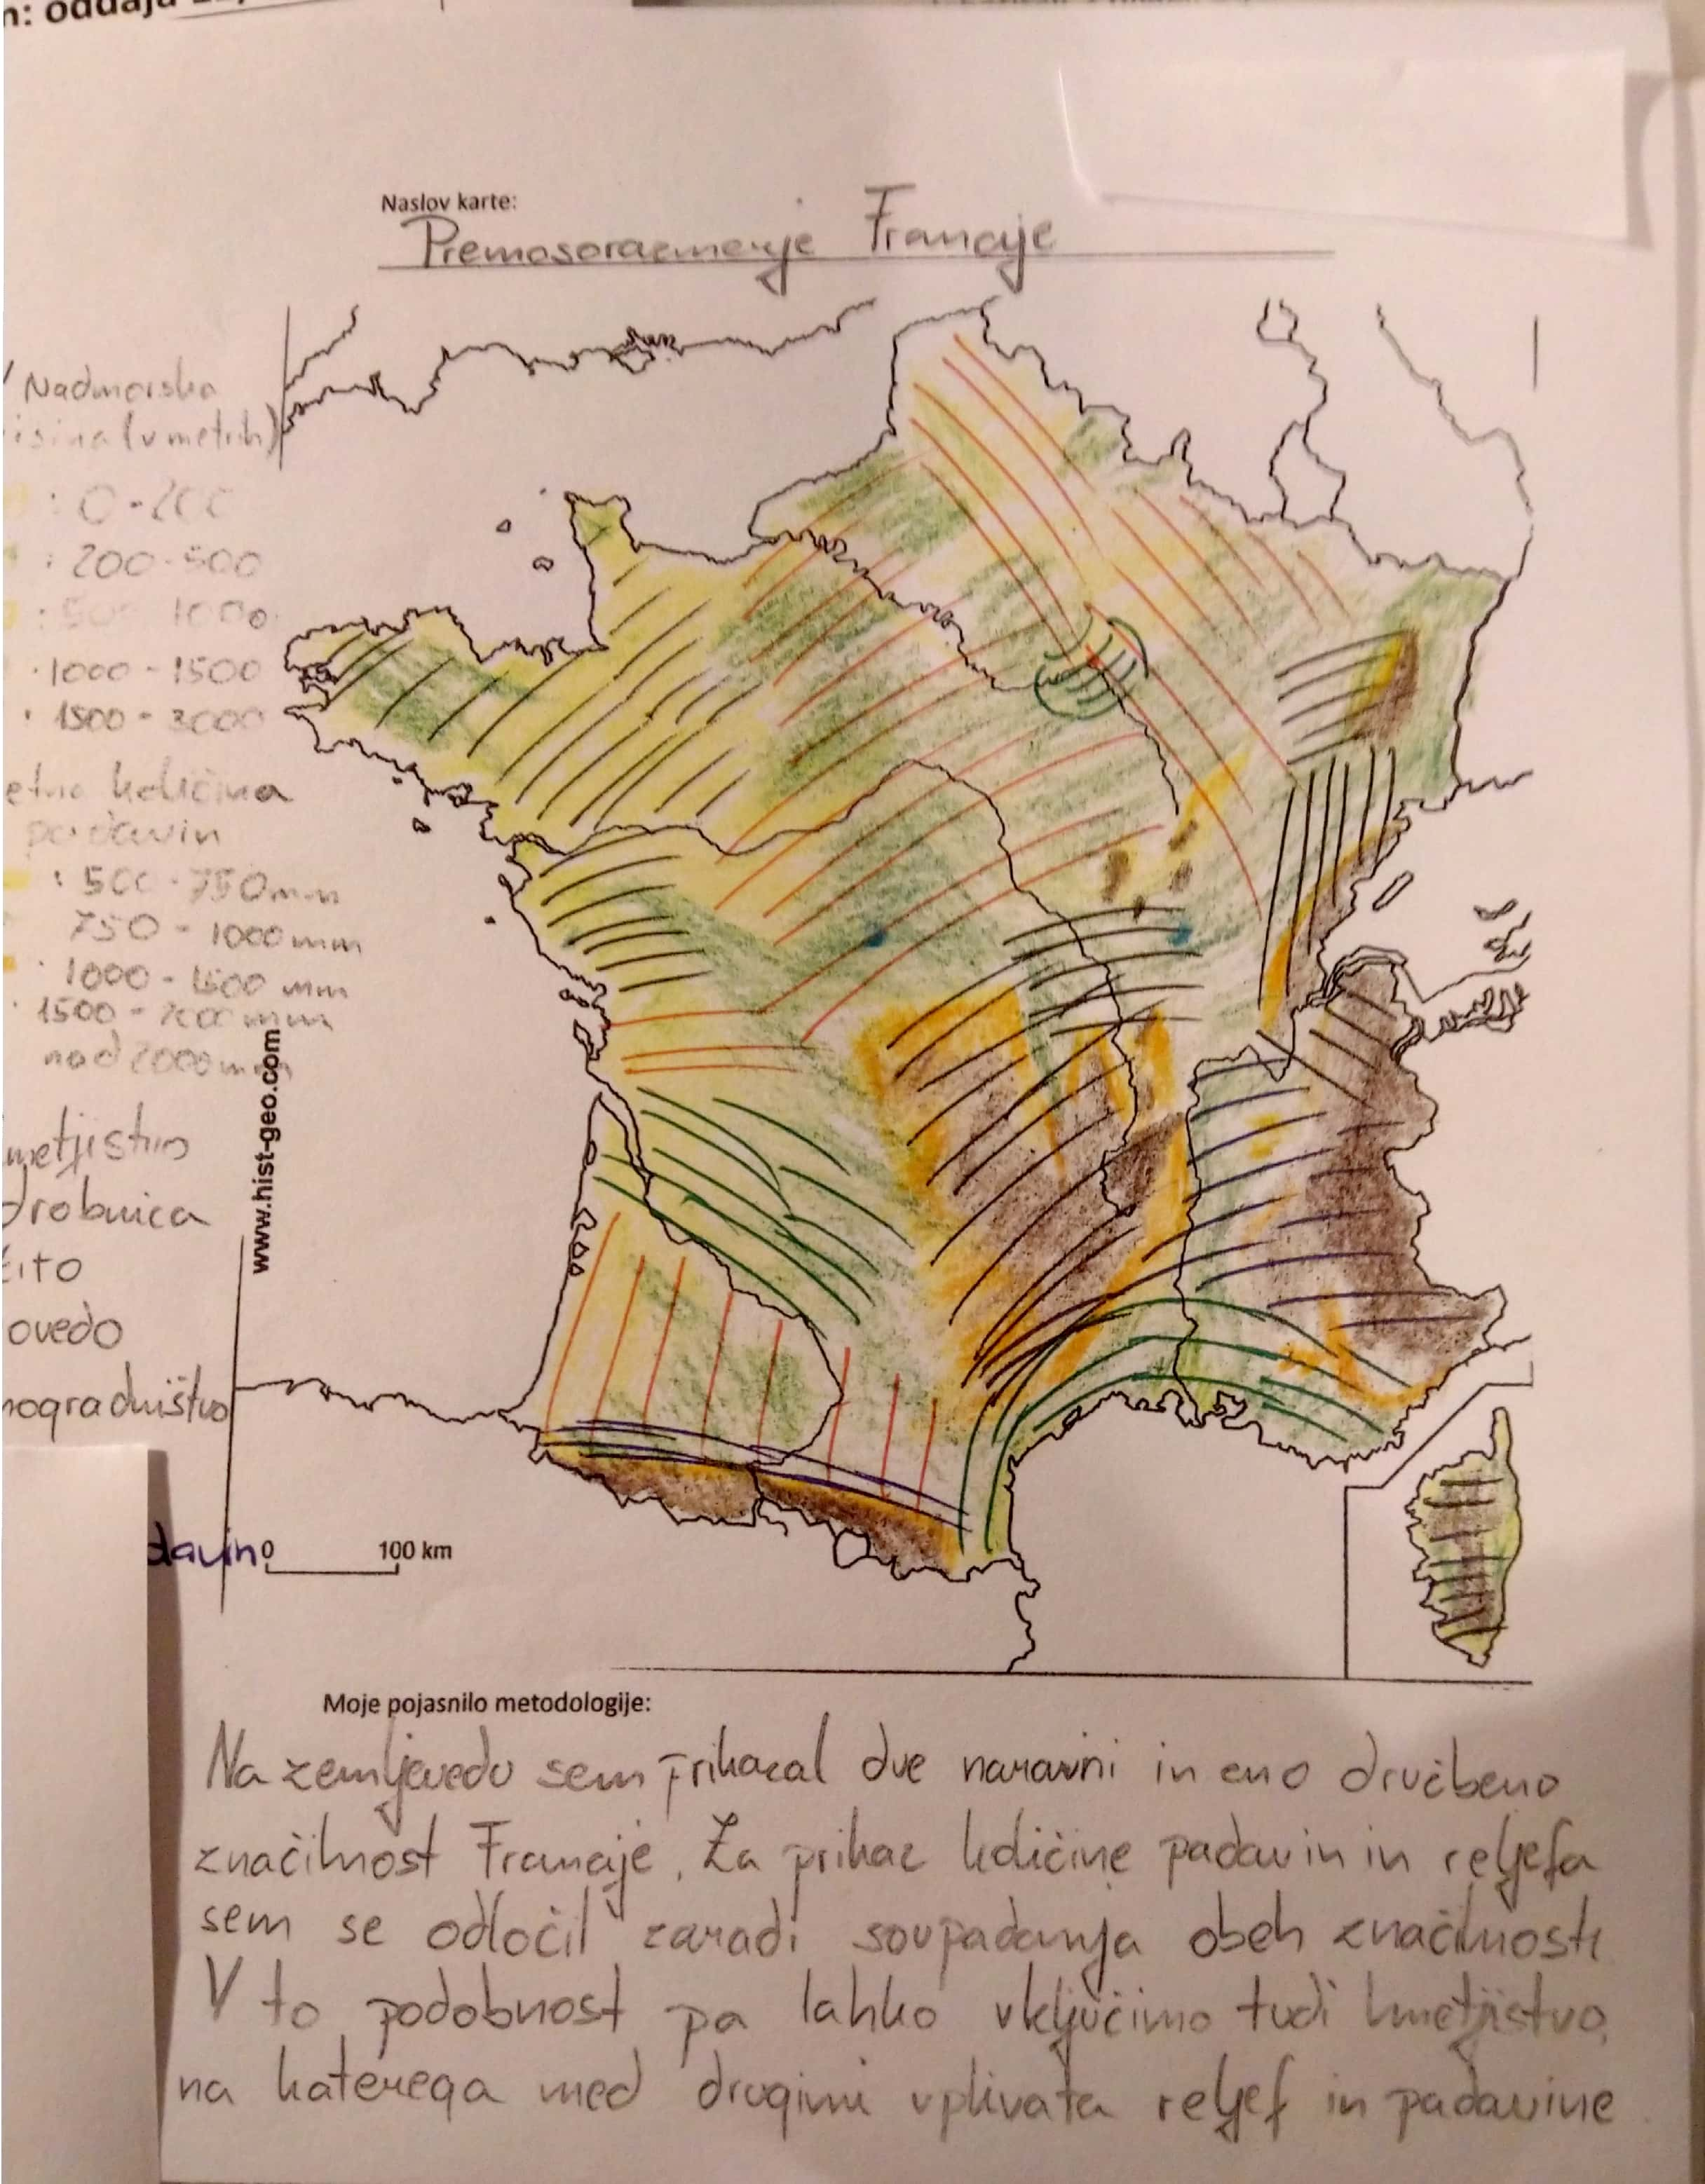 n: oddaja
Naslov karte:
Premosorazmerje Francije
Nadmorska
višina (v metrih)
: 0-200
: 200-500
: 500-1000
· 1000-1500
· 1500-3000
etna količina
padavin
: 500-750mm
750-1000mm
· 1000-1500 mm
1500-2000mm
nad 2000mm
www.hist-geo.com
metijstvo
drobnica
žito
ovedo
nogradništvo
davin
0 100 km
Moje pojasnilo metodologije:
Na zemljevedu sem prikazal dve naravni in eno družbeno
značilnost Francije. Za prikaz količine padavin in reljefa
sem se odločil zaradi sovpadanja obeh značilnosti.
V to podobnost pa lahko vključimo tudi kmetijstvo,
na katerega med drugimi vplivata reljef in padavine.